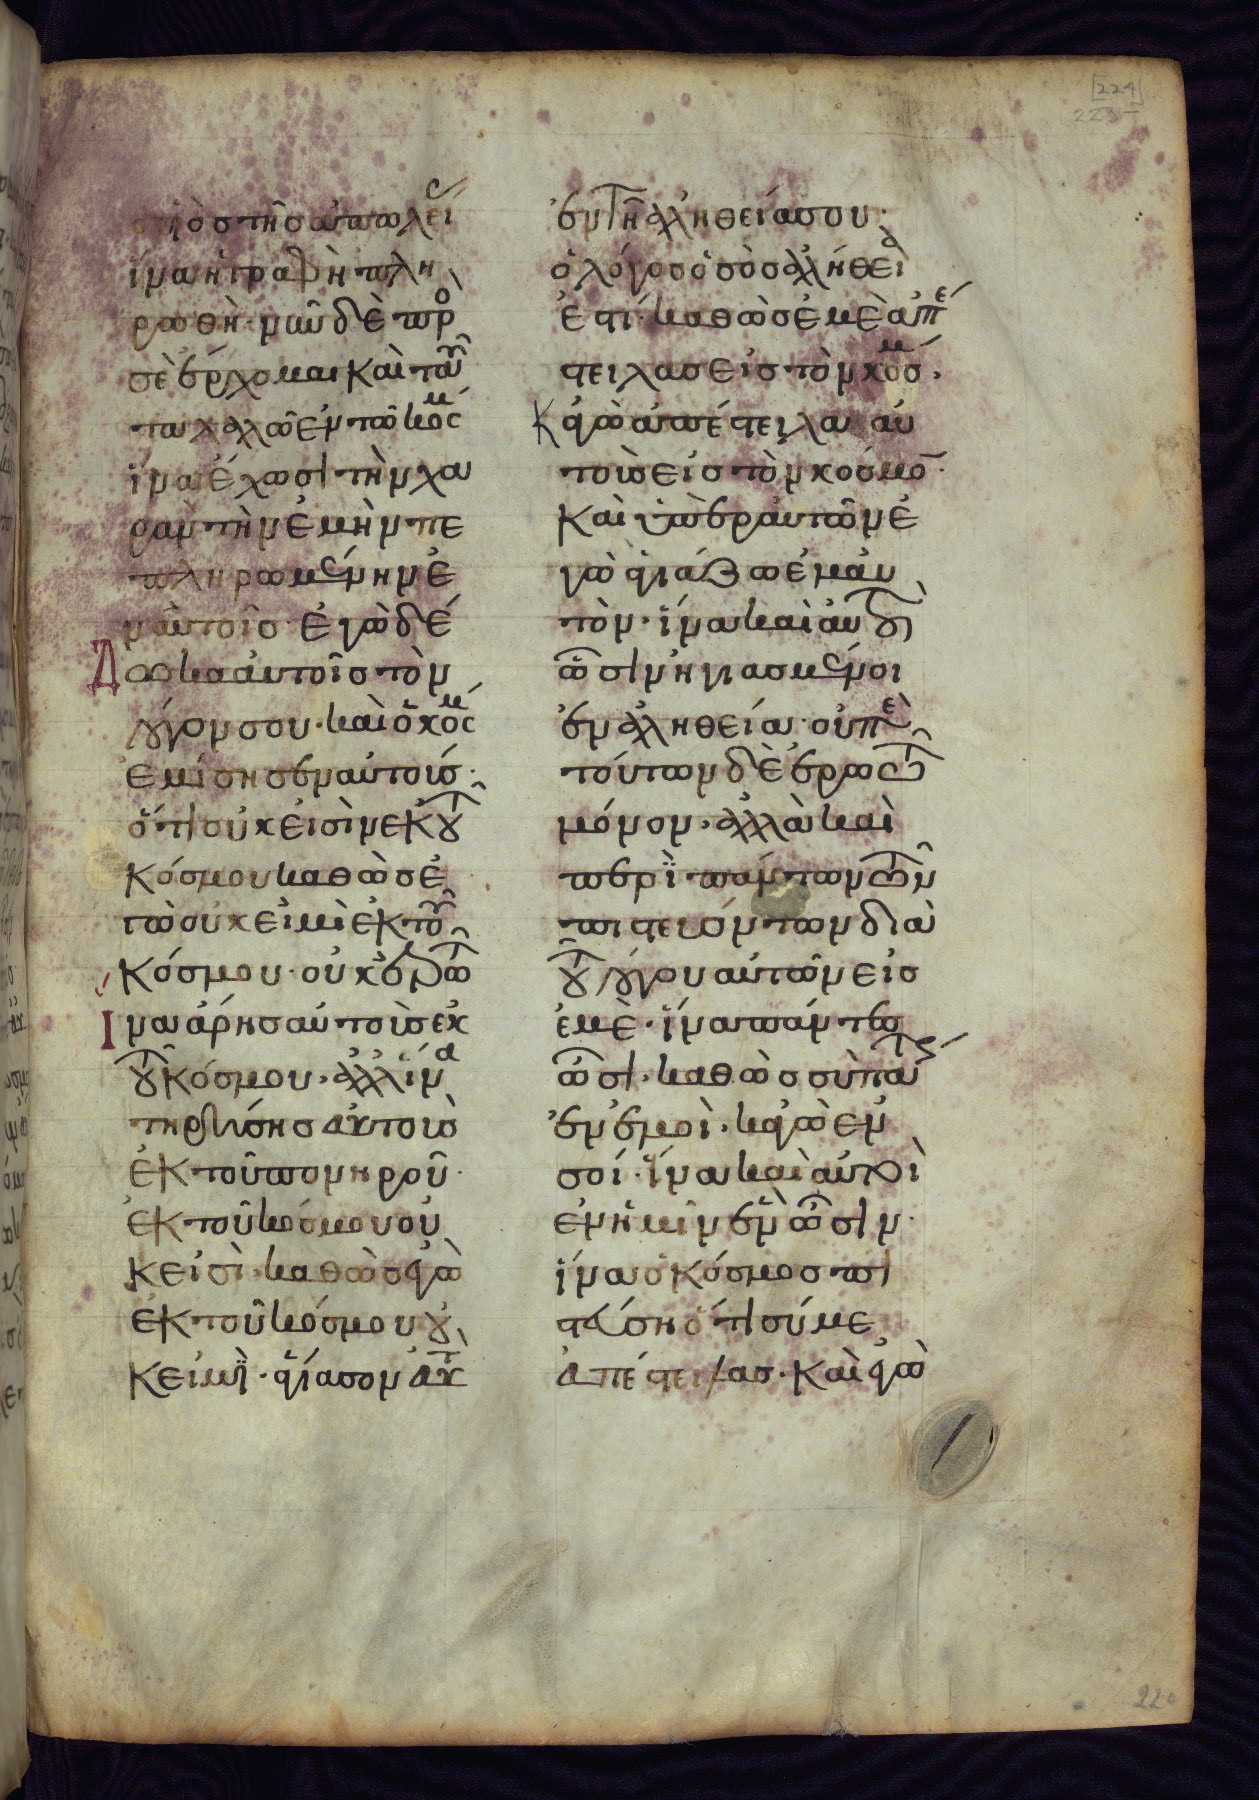 υἱὸς τῆς ἀπωλείς
ἵνα ἡ γραφὴ πλη
ρωθῆ· νῦν δὲ προ
σὲ ἔρχομαι καὶ ταῦ
τα λαλῶ ἐν τῶ κοσμ
ἵνα ἔχωσι τὴν χα
ρὰν τὴν ἐμὴν πε
πληρωμένην ἐ
ν αὐτοῖς· ἐγὼ δέ
Δωκα αὐτοῖς τὸν
λόγον σου· καὶ ὁ κόσμ
ἐμίσησεν αὐτούς·
ὅτι οὐκ εἰσὶν ἐκ τοῦ
κόσμου καθὼς ἐ
γὼ οὐκ εἰμὶ ἐκ τοῦ
κόσμου· οὐκ ἐρωτῶ
Ἵνα ἄρης αὐτοὺς ἐκ
τοῦ κόσμου· ἀλλ' ἵνα
τηρήσης αὐτοὺς
ἐκ τοῦ πονηροῦ·
ἐκ τοῦ κόσμου οὐ
κ εἰσὶ· καθὼς ἐγὼ
ἐκ τοῦ κόσμου οὐ
κ εἰμὶ· ἁγίασον αὐτ
ἐν τῆ ἀληθεία σου·
ὁ λόγος ὁ σὸς ἀλήθειά
ἐστί· καθὼς ἐμὲ ἀπέ
στειλας εἰς τὸν κόσμ·
Κἀγὼ ἀπέστειλα αὐ
τοὺς εἰς τὸν κόσμον·
καὶ ὑπὲρ αὐτῶν ἐ
γὼ ἁγιάζω ἐμαυ
τόν· ἵνα καὶ αὐτοὶ
ὦσιν ἡγιασμένοι
ἐν ἀληθεία· οὐ περὶ
τούτων δὲ ἐρωτῶ
μόνον· ἀλλὰ καὶ
περὶ πάντων τῶν
πιστευόντων διὰ
τοῦ λόγου αὐτῶν εἰς
ἐμὲ· ἵνα πάντες
ὦσι· καθὼς σὺ πάτερ
ἐν ἐμοὶ· κἀγὼ ἐν
σοί· ἵνα καὶ αὐτοὶ
ἐν ἡμῖν ἓν ὦσιν·
ἵνα ὁ κόσμος πι
στεύση ὅτι σύ με
ἀπέστειλας· καὶ ἐγὼ
[224]
223
220